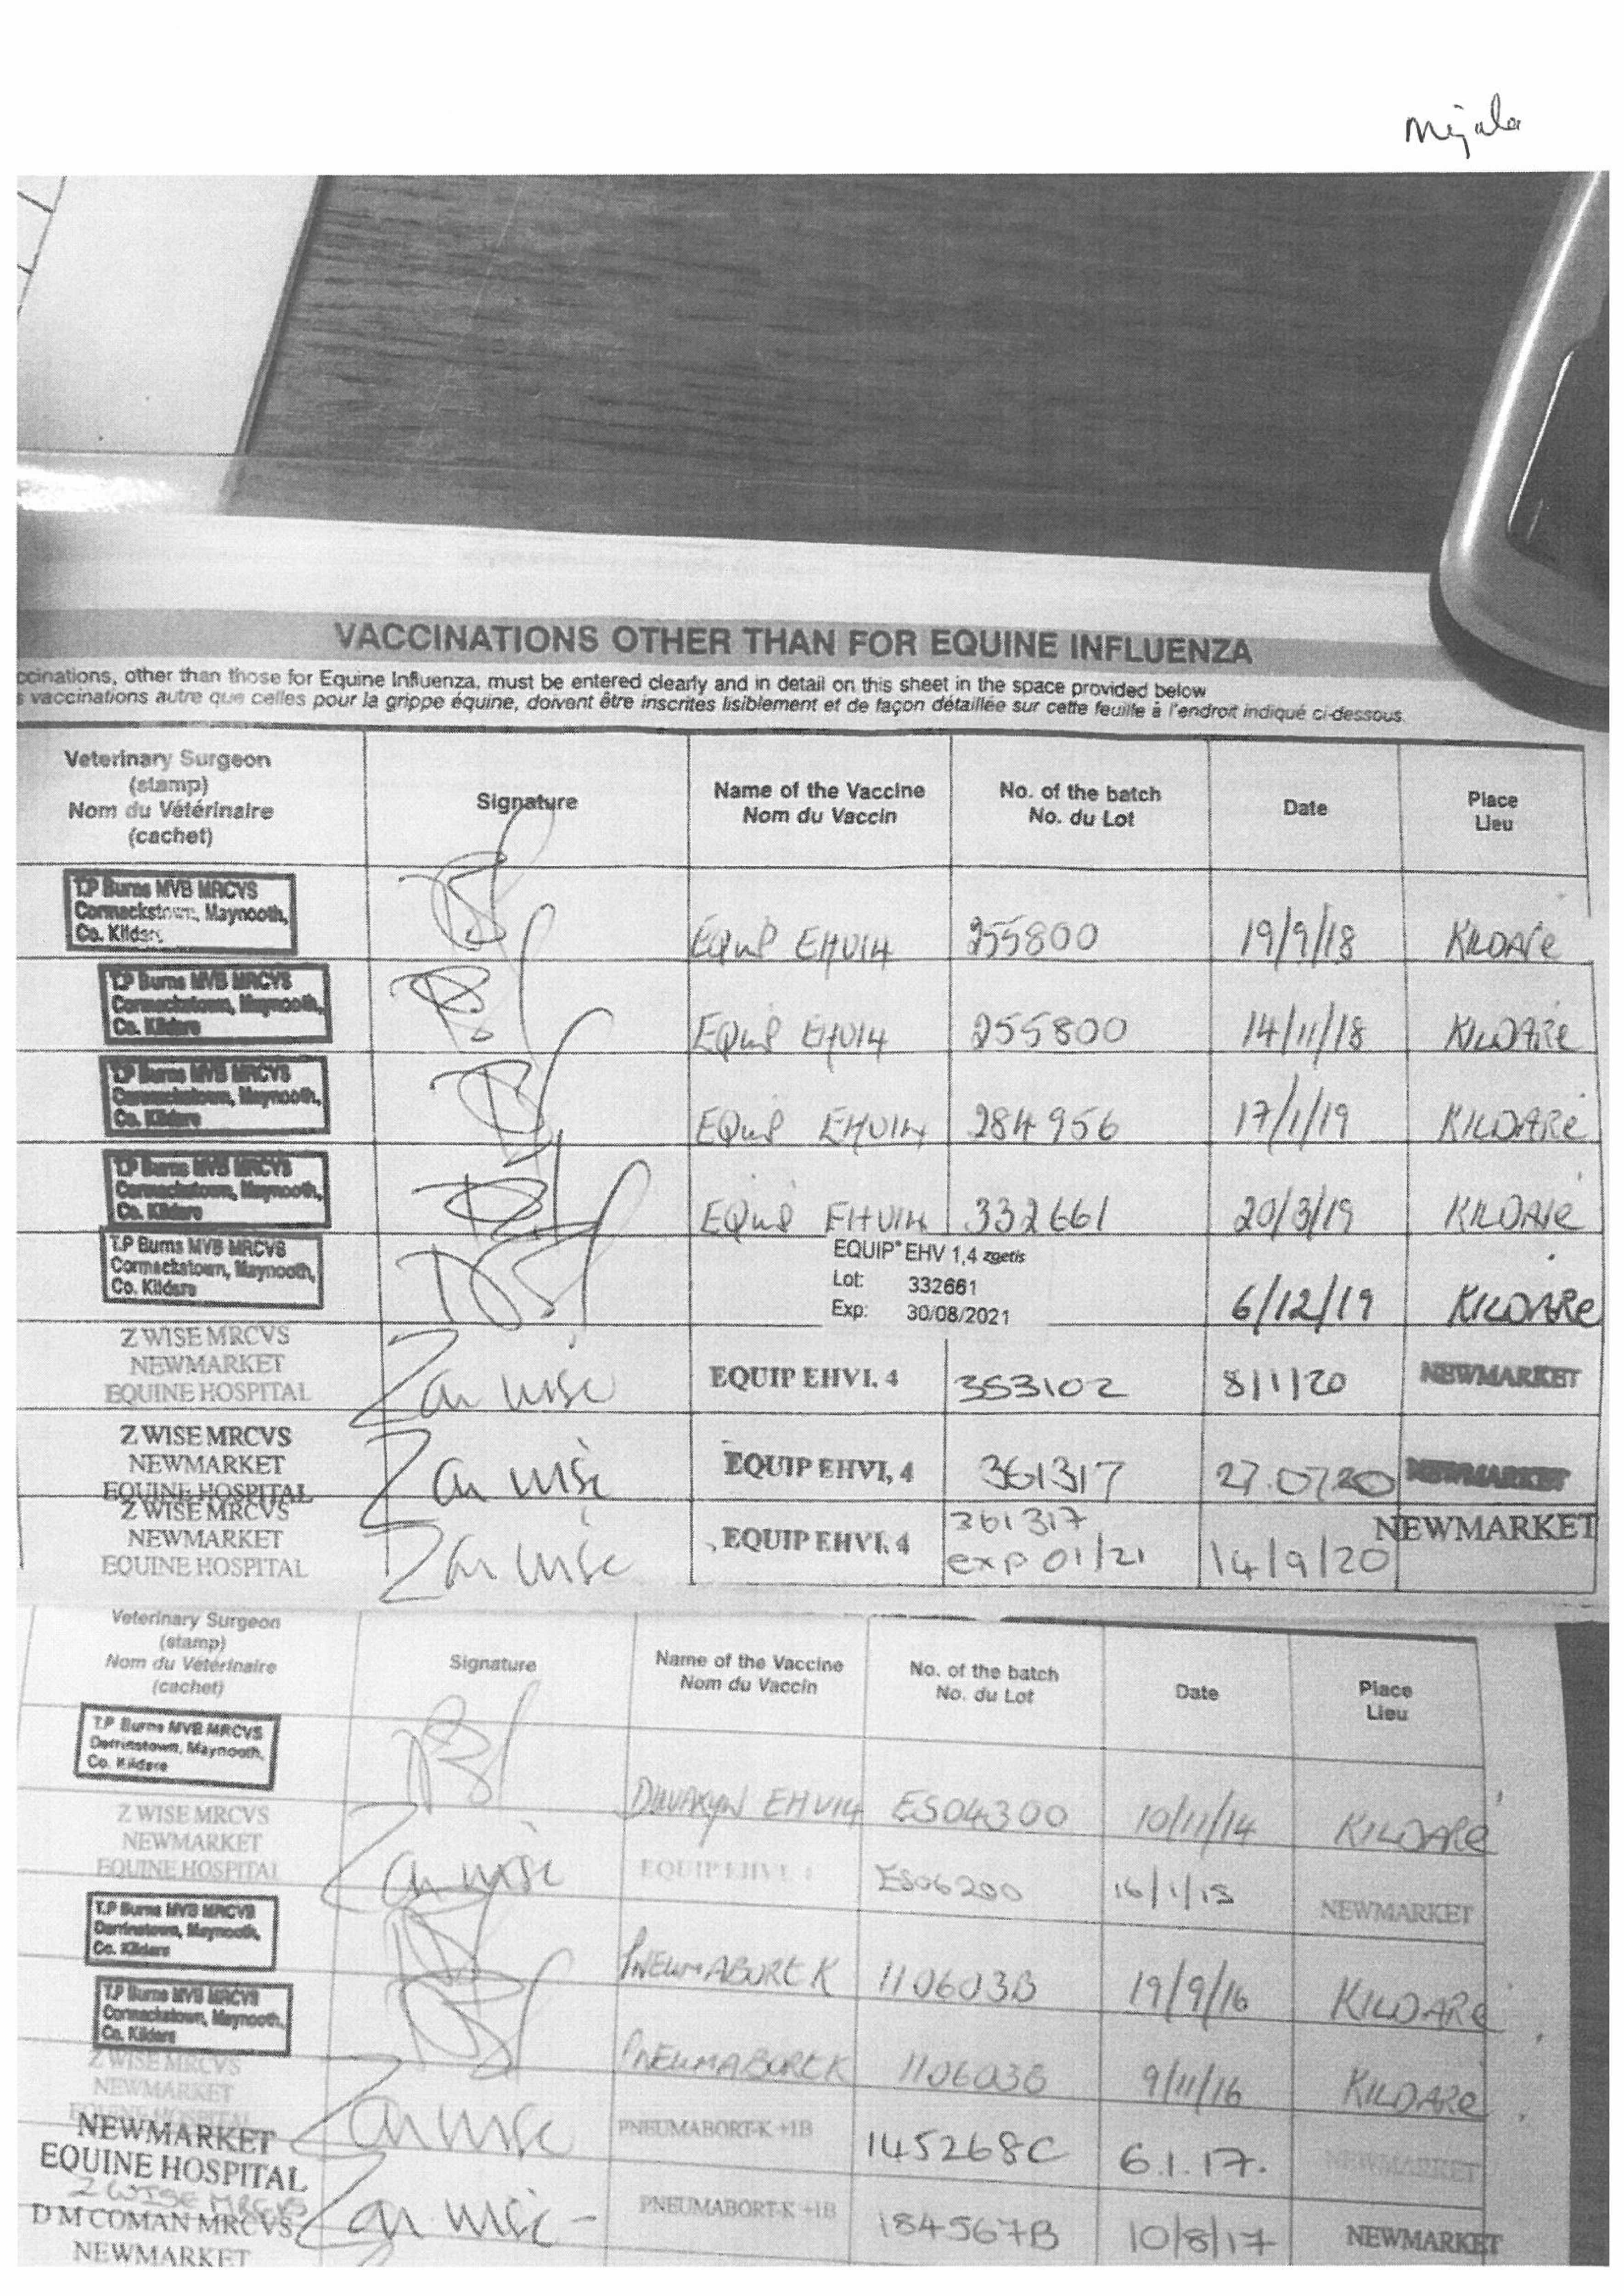 Mijala
VACCINATIONS OTHER THAN FOR EQUINE INFLUENZA
ccinations, other than those for Equine Influenza, must be entered clearly and in detail on this sheet in the space provided below
s vaccinations autre que celles pour la grippe équine, doivent être inscrites lisiblement et de façon détaillée sur cette feuille à l'endroit indiqué ci-dessous.
Veterinary Surgeon
(stamp)
Nom du Vétérinaire
(cachet)
Signature
Name of the Vaccine
Nom du Vaccin
No. of the batch
No. du Lot
Date
Place
Lieu
T.P Burns MVB MRCVS
Cormackstown, Maynooth,
Co. Kildare
EQUIP EHV14 255800 19/9/18 KILDARE
T.P Burns MVB MRCVS
Cormackstown, Maynooth,
Co. Kildare
EQUIP EHV14 255800 14/11/18 KILDARE
T.P Burns MVB MRCVS
Cormackstown, Maynooth,
Co. Kildare
EQUIP EHV14 284956 17/1/19 KILDARE
T.P Burns MVB MRCVS
Cormackstown, Maynooth,
Co. Kildare
EQUIP EHV14 332661 20/3/19 KILDARE
T.P Burns MVB MRCVS
Cormackstown, Maynooth,
Co. Kildare
EQUIP® EHV 1,4 zoetis
Lot: 332661
Exp: 30/08/2021
6/12/19 KILDARE
Z WISE MRCVS
NEWMARKET
EQUINE HOSPITAL
Zan Wise EQUIP EHV1, 4 353102 8/1/20 NEWMARKET
Z WISE MRCVS
NEWMARKET
EQUINE HOSPITAL
Zan Wise EQUIP EHV1, 4 361317 27.07.20 NEWMARKET
Z WISE MRCVS
NEWMARKET
EQUINE HOSPITAL
Zan Wise EQUIP EHV1, 4 361317
exp 01/21 14/9/20 NEWMARKET
Veterinary Surgeon
(stamp)
Nom du Vétérinaire
(cachet)
Signature
Name of the Vaccine
Nom du Vaccin
No. of the batch
No. du Lot
Date
Place
Lieu
T.P Burns MVB MRCVS
Derrinstown, Maynooth,
Co. Kildare
DUVAXYN EHV14 ES04300 10/11/14 KILDARE
Z WISE MRCVS
NEWMARKET
EQUINE HOSPITAL
Zan Wise EQUIP EHV1, 4 ES06200 16/1/15 NEWMARKET
T.P Burns MVB MRCVS
Derrinstown, Maynooth,
Co. Kildare
PNEUMABORT K 110603B 19/9/16 KILDARE
T.P Burns MVB MRCVS
Cormackstown, Maynooth,
Co. Kildare
PNEUMABORT K 110603B 9/11/16 KILDARE
Z WISE MRCVS
NEWMARKET
EQUINE HOSPITAL
Zan Wise PNEUMABORT-K +1B 145268C 6.1.17. NEWMARKET
NEWMARKET
EQUINE HOSPITAL
Z WISE MRCVS
Zan Wise PNEUMABORT-K +1B 184567B 10/8/17 NEWMARKET
D M COMAN MRCVS
NEWMARKET